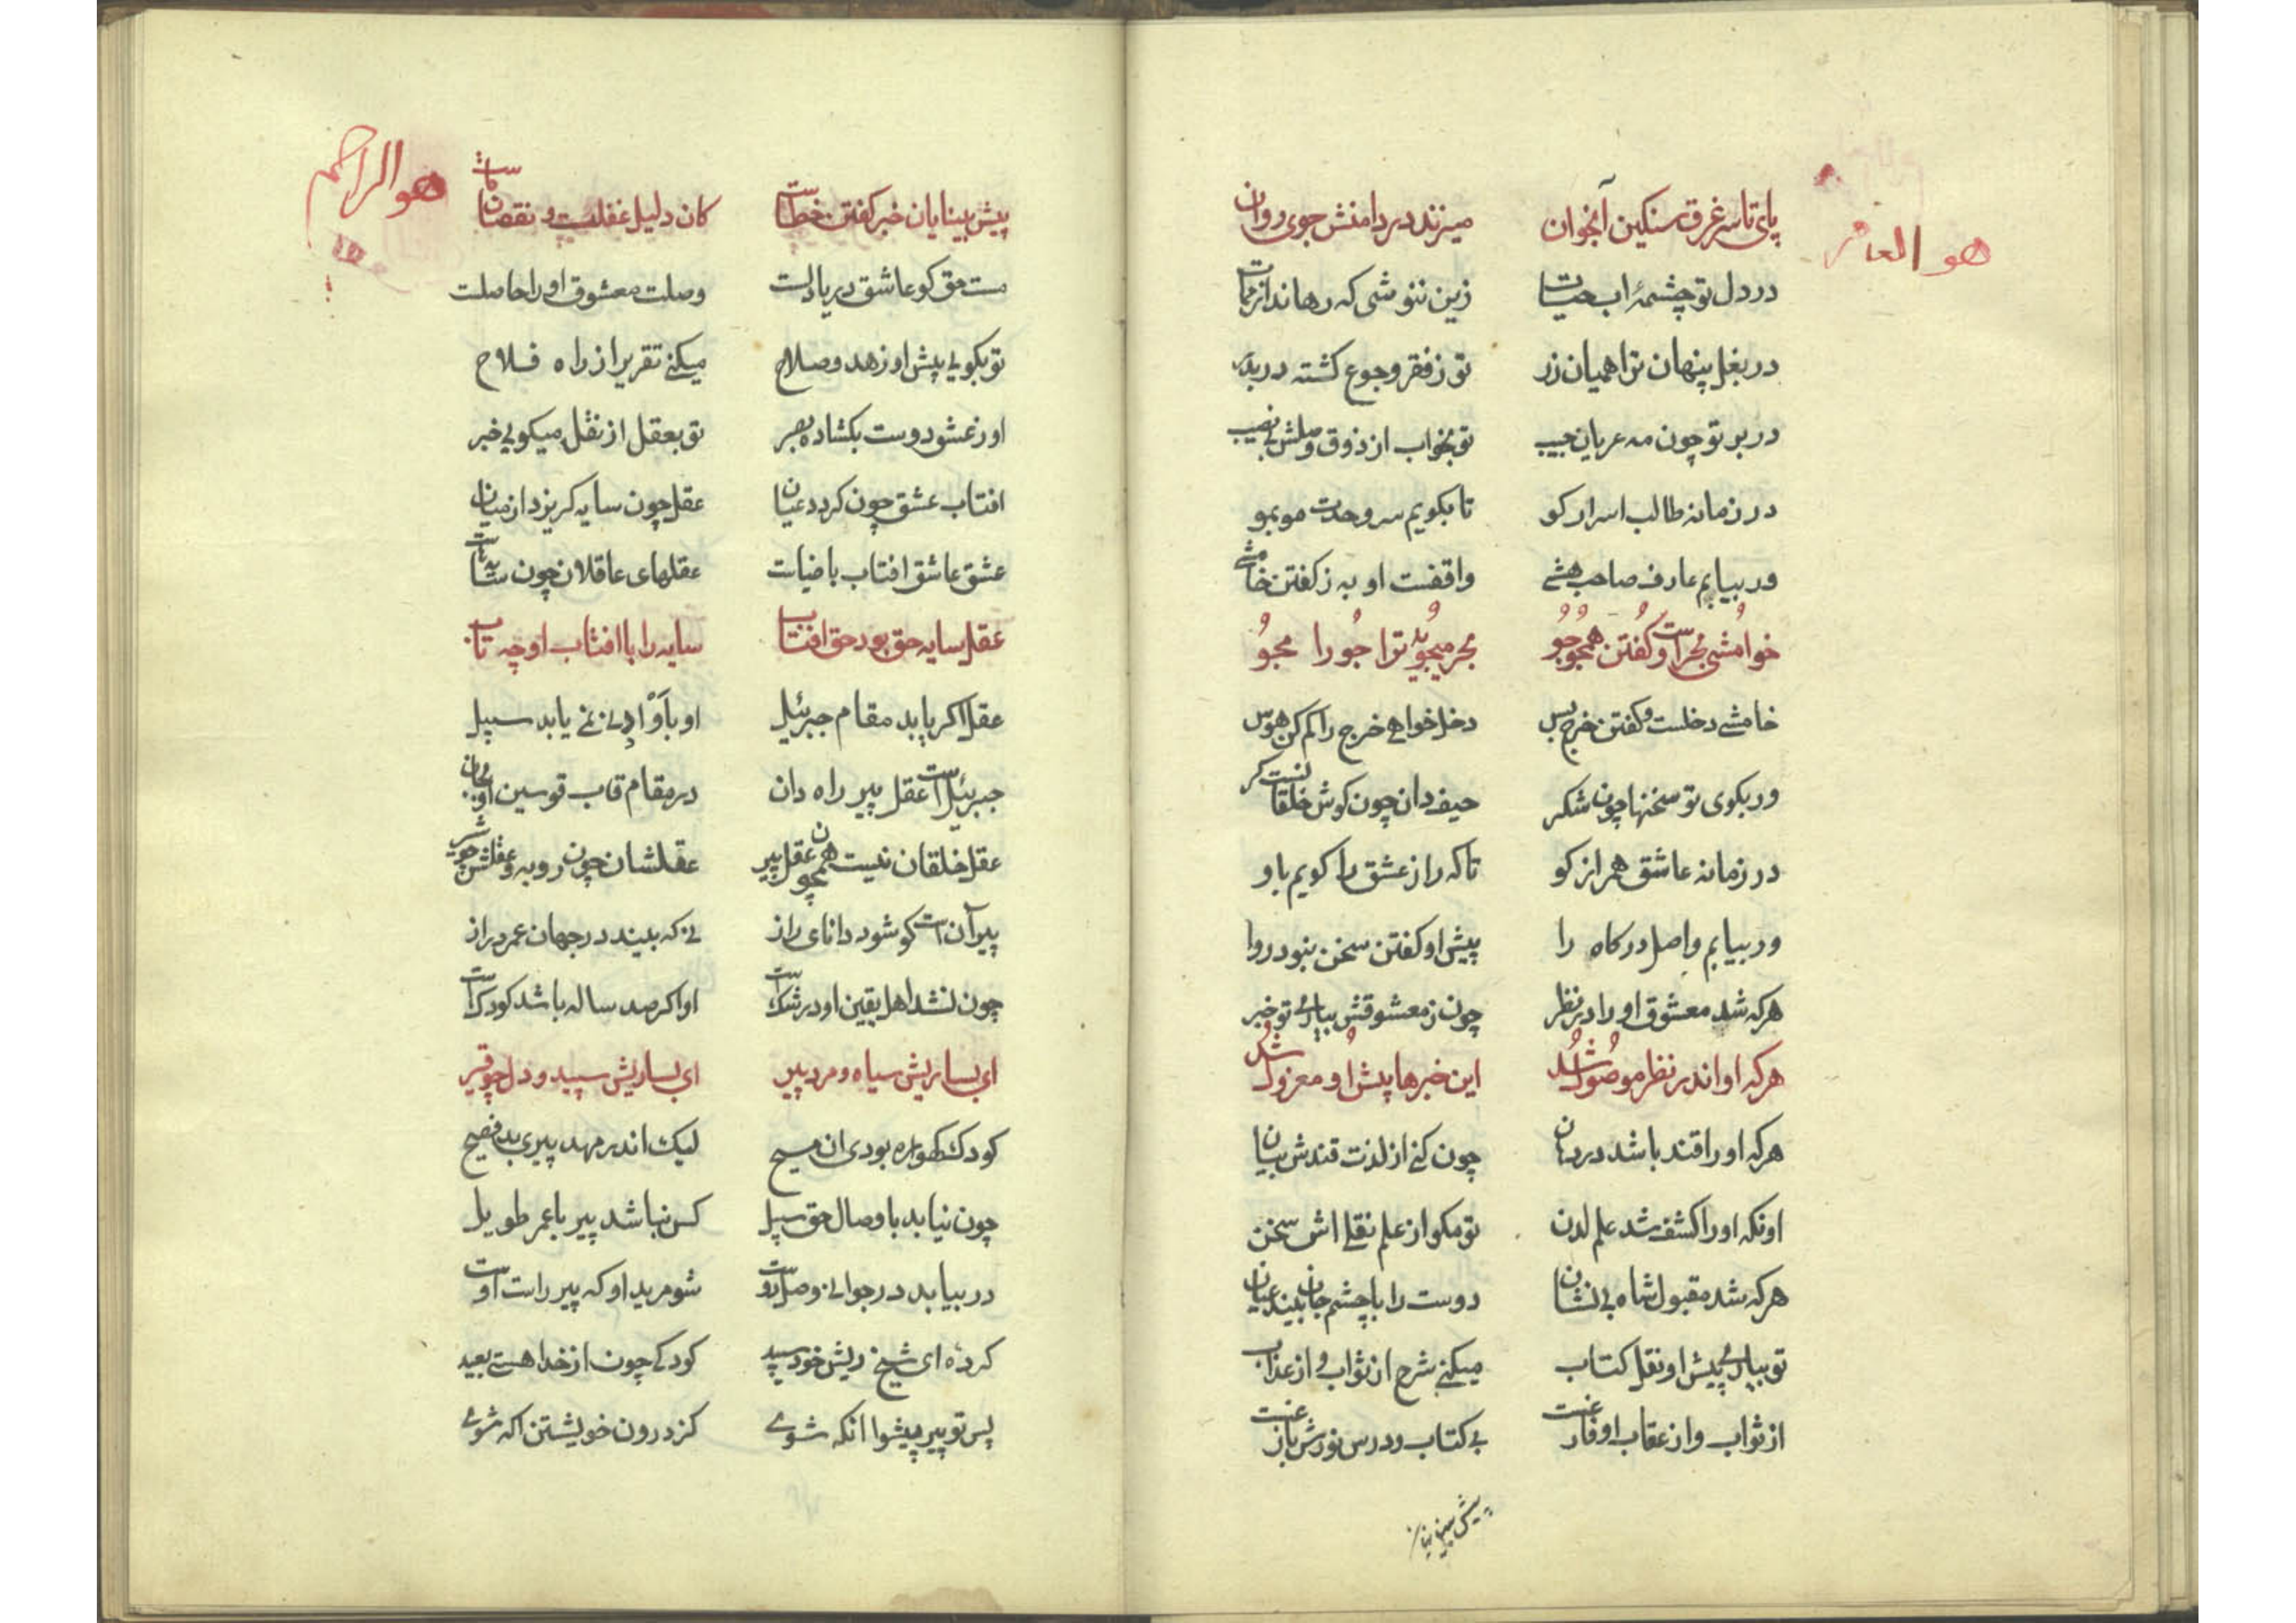 هو العا
پای تا سر غرق سنکین آبخوان میزند در دامنش جوی روان
در دل تو چشمهٔ اب حیات زین ننوشی که رهاند از ممات
در بغل پنهان ترا همیان زر تو ز فقر و جوع کشته در بدر
در بر تو چون مه عریان حبیب تو بخواب از ذوق وصلش بی نصیب
در زمانه طالب اسرار کو تا بکویم سر وحدت مو بمو
ور بیابم عارف صاحب هشی واقفست او به ز کفتن خامشی
خوامُشی بحرست و کُفتن همچو جُو بحر میجوُید ترا جُو را مجوُ
خامشی دخلست و کفتن خرج بس دخل خواهی خرج را کم کن هوس
ور بکوی تو سخنها چون شکر حیف دان چون کوش خلقانست کر
در زمانه عاشق همراز کو تا که راز عشق را کویم باو
ور بیابم واصل درکاه را پیش او کفتن سخن نبود روا
هر که شد معشوق او را در نظر چون ز معشوقش بیاری تو خبر
هر که او اندر نظر موصُول شُد این خبرها پیش او معزول شُد
هر که او را قند باشد در دهان چون کنی از لذت قندش بیان
اونکه او را کشف شد علم لدن تو مکو از علم نقلی اش سخن
هر که شد مقبول شاه بی نشان دوست را با چشم جان بیند عیان
تو بیاری پیش او نقل کتاب میکنی شرح از ثواب و از عذاب
از ثواب و از عقاب او فارغست بی کتاب و درس نورش بازغست
پیش بینایان
هو الراحم
پیش بینایان خبر کفتن خطاست کان دلیل غفلت و نقصان ماست
مست حق کو عاشق دریادلست وصلت معشوق او را حاصلت
تو بکویی پیش او زهد و صلاح میکنی تقریر از راه فلاح
او ز عشق دوست بکشاده بصر تو بعقل از نقل میکویی خبر
افتاب عشق چون کردد عیان عقل چون سایه کریزد از میان
عشق عاشق افتاب با ضیاست عقلهای عاقلان چون سایهاست
عقل سایه حق بود حق افتاب سایه را با افتاب او چه تاب
عقل اکر یابد مقام جبرئیل او باَوْ ادنی نمی یابد سبیل
جبرئیل است عقل پیر راه دان در مقام قاب قوسین او
عقل خلقان نیست همچون عقل پیر عقلشان چون روبه و عقلش چو شیر
پیر آن است کو شود دانای راز نی که بیند در جهان عمر دراز
چون نشد اهل یقین او در شک است او اکر صد ساله باشد کودک است
ای بسا ریش سیاه و مرد پیر ای بسا ریش سپید و دل چو قیر
کودک کهواره بودی ان مسیح لیک اندر مهد پیری بد فصیح
چون نیابد با وصال حق سبیل کس نباشد پیر با عمر طویل
در بیابد در جوانی وصل دوست شو مرید او که پیر راست اوست
کردهٔ ای شیخ ریش خود سپید کودکی چون از خدا هستی بعید
پس تو پیر پیشوا انکه شوی کز درون خویشتن اکه شوی